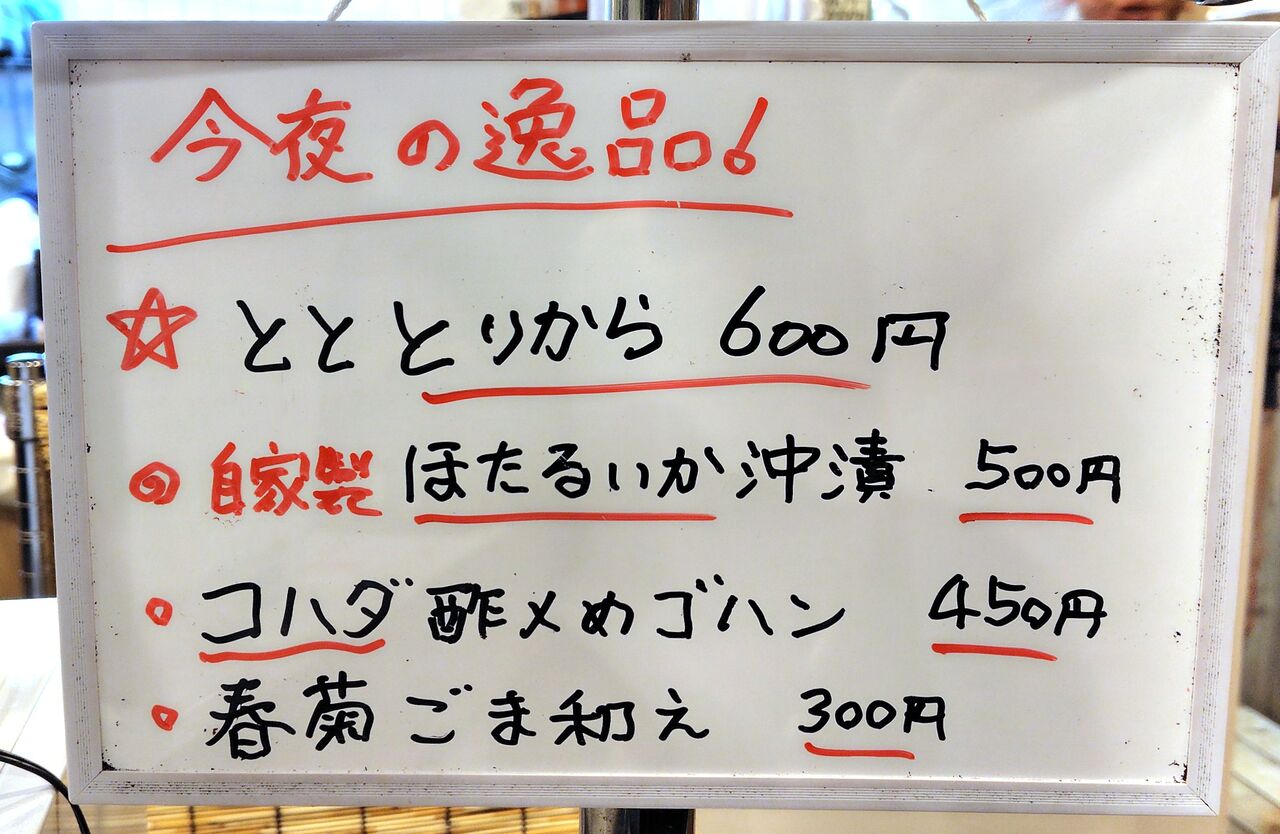 今夜の逸品!
☆ とととりから 600円
◎ 自家製 ほたるいか沖漬 500円
○ コハダ酢〆めゴハン 450円
○ 春菊ごま和え 300円